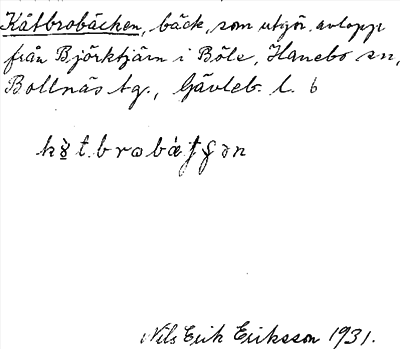 Kåtbrobäcken, bäck, som utgör avlopp
från Björktjärn i Böle, Hanebo sn,
Bollnäs tg., Gävleb. l. b
Nils Erik Eriksson 1931.